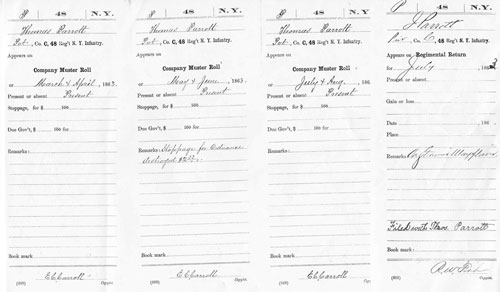 P 48 N.Y.
Thomas Parrott
Pvt, Co. C, 48 Reg't N. Y. Infantry.
Appears on
Company Muster Roll
for March & April, 1863.
Present or absent Present
Stoppage, for $ 100
Due Gov't, $ 100 for
Remarks:
Book mark:
E C Carroll
Copyist.
P 48 N.Y.
Thomas Parrott
Pvt, Co. C, 48 Reg't N. Y. Infantry.
Appears on
Company Muster Roll
for May & June, 1863.
Present or absent Present
Stoppage, for $ 100
Due Gov't, $ 100 for
Remarks: Stoppage for Ordnance
destroyed
Book mark:
E C Carroll
Copyist.
P 48 N.Y.
Thomas Parrott
Pvt, Co. C, 48 Reg't N. Y. Infantry.
Appears on
Company Muster Roll
for July & Aug, 186
Present or absent
Stoppage, for $ 100
Due Gov't, $ 100 for
Remarks:
Book mark:
E C Carroll
Copyist.
P 48 N.Y.
Parrott
Co. C, 48 Reg't N. Y. Infantry.
Appears on Regimental Return
for July 186
Present or absent
Gain or loss
Date 186
Place
Remarks:
Filed with Thos Parrott
Book mark:
Copyist.